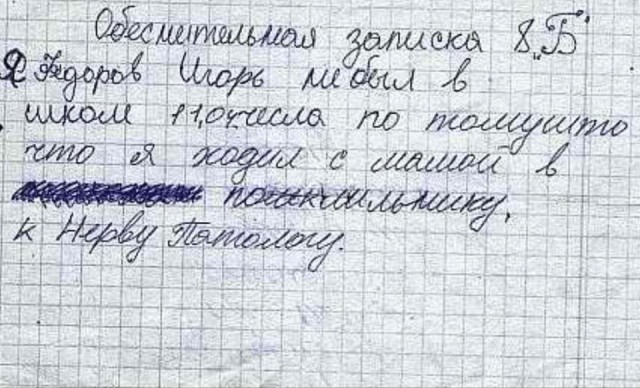 Обеснительная записка 8 „Б"
Я Фёдоров Игорь небыл в
школе 11,04 числа по томушто
что я ходил с мамой в
к Нерву Патологу.